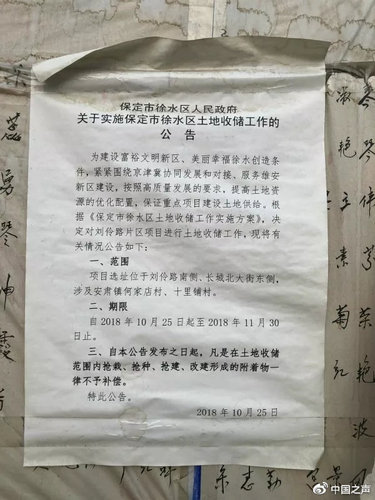 保定市徐水区人民政府
关于实施保定市徐水区土地收储工作的
公 告
为建设富裕文明新区、美丽幸福徐水创造条
件，紧紧围绕京津冀协同发展和对接、服务雄安
新区建设，按照高质量发展的要求，提高土地资
源的优化配置，保证重点项目建设土地供给。根
据《保定市徐水区土地收储工作实施方案》，决
定对刘伶路片区项目进行土地收储工作，现将有
关情况公告如下：
一、范围
项目选址位于刘伶路南侧、长城北大街东侧，
涉及安肃镇何家店村、十里铺村。
二、期限
自 2018 年 10 月 25 日起至 2018 年 11 月 30
日止。
三、自本公告发布之日起，凡是在土地收储
范围内抢栽、抢种、抢建、改建形成的附着物一
律不予补偿。
特此公告。
2018 年 10 月 25 日
艳
琴
王
伟
素
芬
菊
荣
红
艳
波
勇
坤
志勤
@中国之声